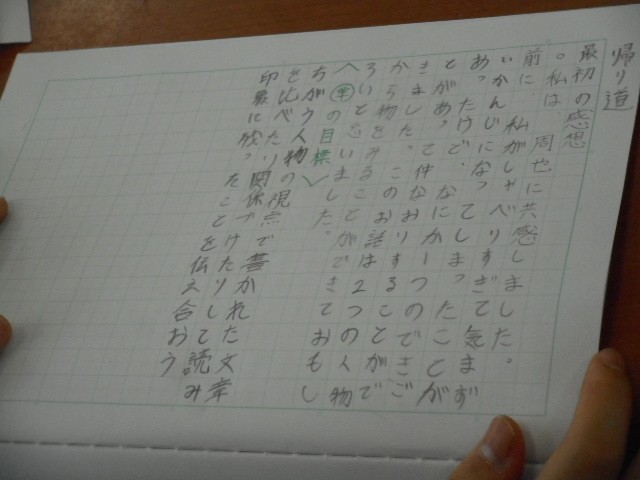 帰り道
最初の感想
。私は、周也に共感しました。
前に、私がしゃべりすぎて気まず
いかんじになってしまったことが
あったけど、なにか一つのできご
とがあって、仲なおりすることがで
きました。このお話は2つの人物
から物をみることができておもし
ろいと思いました。
〈学の目標〉
ちがう人物の視点で書かれた文章
を比べたり関係づけたりして読み
印象に残ったことを伝え合おう。